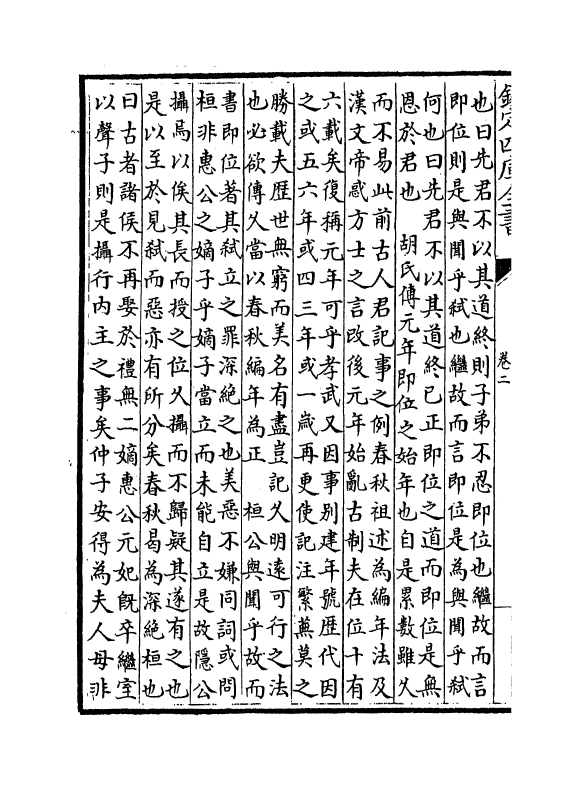 欽定四庫全書
卷二
也曰先君不以其道終則子弟不忍即位也繼故而言
即位則是與聞乎弑也繼故而言即位是為與聞乎弑
何也曰先君不以其道終已正即位之道而即位是無
恩於君也 胡氏傳元年即位之始年也自是累數雖久
而不易此前古人君記事之例春秋祖述為編年法及
漢文帝惑方士之言改後元年始亂古制夫在位十有
六載矣復稱元年可乎孝武又因事别建年號歴代因
之或五六年或四三年或一歳再更使記注繁蕪莫之
勝載夫歴世無窮而美名有盡豈記久明逺可行之法
也必欲傳久當以春秋編年為正 桓公與聞乎故而
書即位著其弑立之罪深絶之也美惡不嫌同詞或問
桓非惠公之嫡子乎嫡子當立而未能自立是故隱公
攝焉以俟其長而授之位久攝而不歸疑其遂有之也
是以至於見弑而惡亦有所分矣春秋曷為深絶桓也
曰古者諸侯不再娶於禮無二嫡惠公元妃旣卒繼室
以聲子則是攝行内主之事矣仲子安得為夫人母非